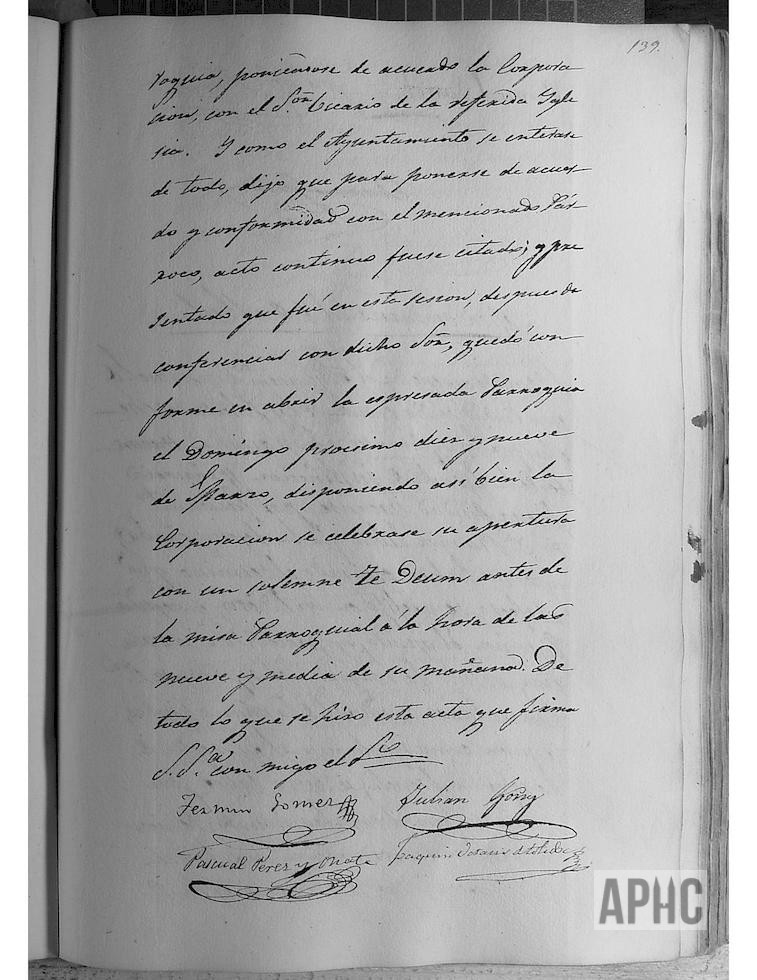 139.
roquia, poniendose de acuerdo la Corpora
cion, con el S.or Vicario de la referida Ygle
sia. Y como el Ayuntamiento se enterase
de todo, dijo que para ponerse de acuer-
do y conformidad con el mencionado Pár-
roco, acto continuo fuese citado; y pre
sentado que fué en esta sesion, despues de
conferenciar con dicho Sor, quedó con
forme en abrir la espresada Parroquia
el Domingo procsimo diez y nueve
de Marzo, disponiendo asi bien la
Corporacion se celebrase su apertura
con un solemne Te Deum antes de
la misa Parroquial a la hora de las
nueve y media de su mañana. De
todo lo que se hiso esta acta que firma
S.S.a con migo el
Fermin Gomez
Julian
Pascual Perez y Oñate
Joaquin
APHC